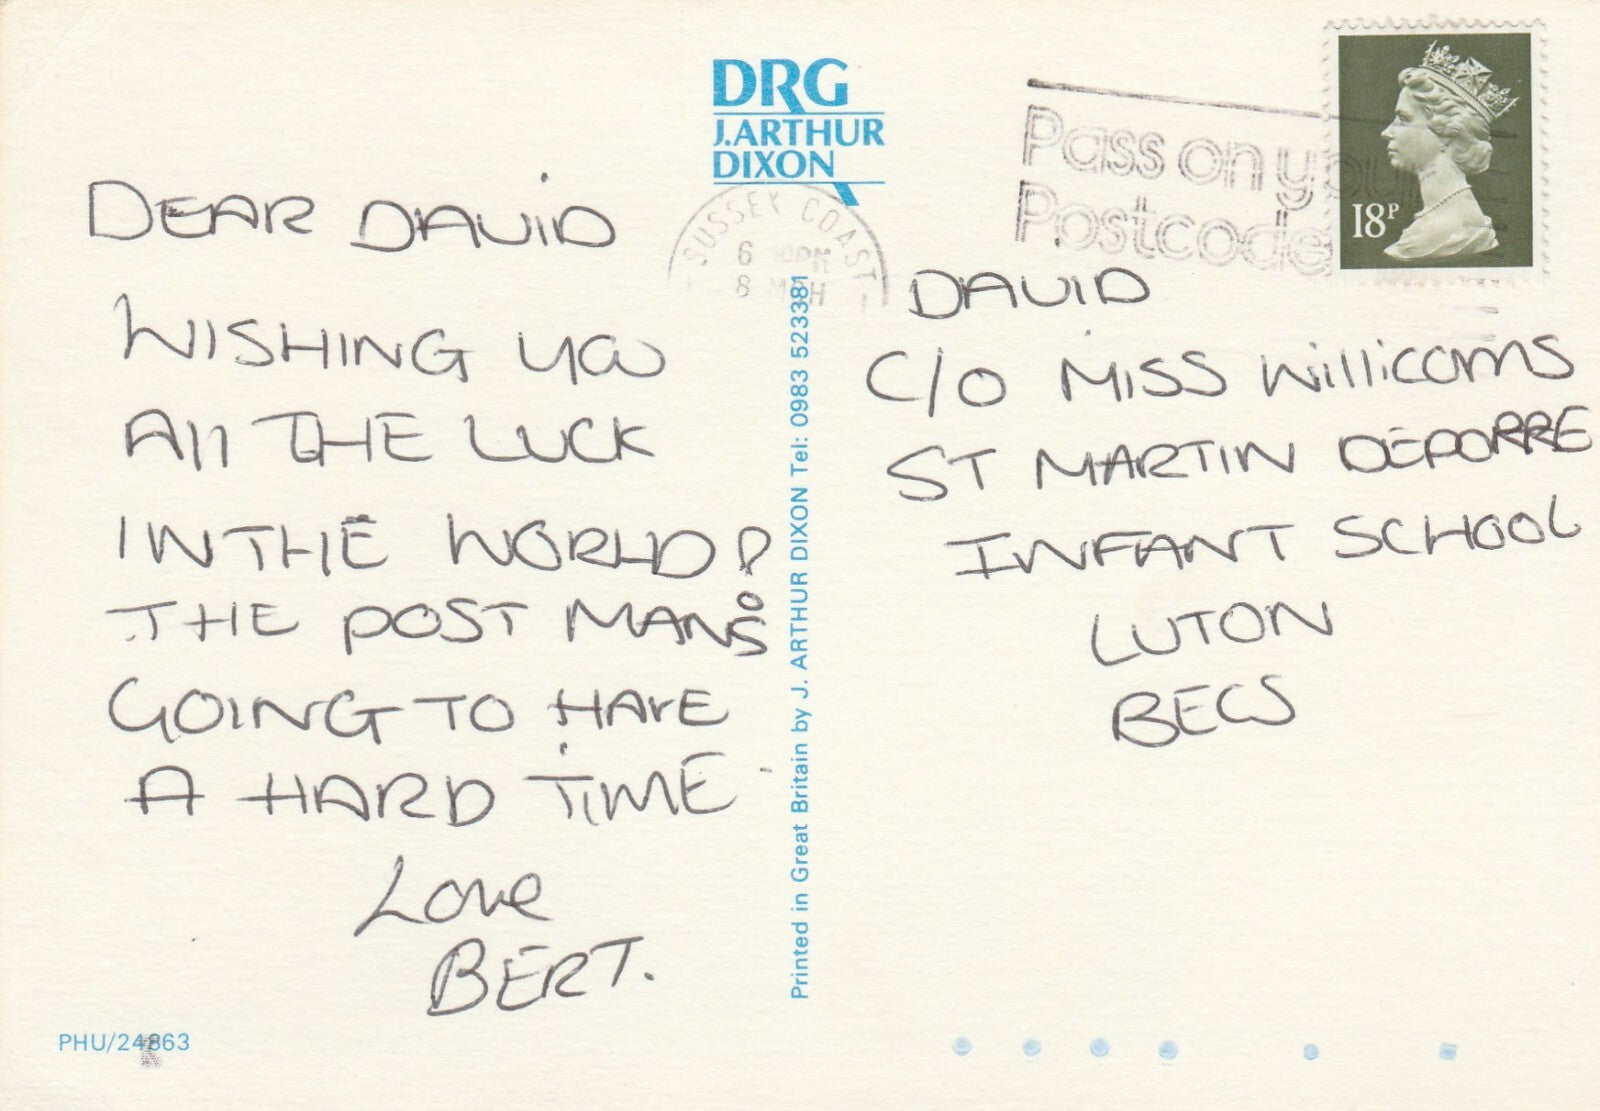 DRG
J.ARTHUR
DIXON
SUSSEX COAST
6 PM
8
Pass on your
Postcode
18P
DEAR DAVID
WISHING YOU
All THE LUCK
IN THE WORLD!
THE POST MAN'S
GOING TO HAVE
A HARD TIME
Love
BERT.
PHU/24863
Printed in Great Britain by J. ARTHUR DIXON Tel: 0983 523381
DAVID
C/O MISS Williams
ST MARTIN DEPORRE
INFANT SCHOOL
LUTON
BECS